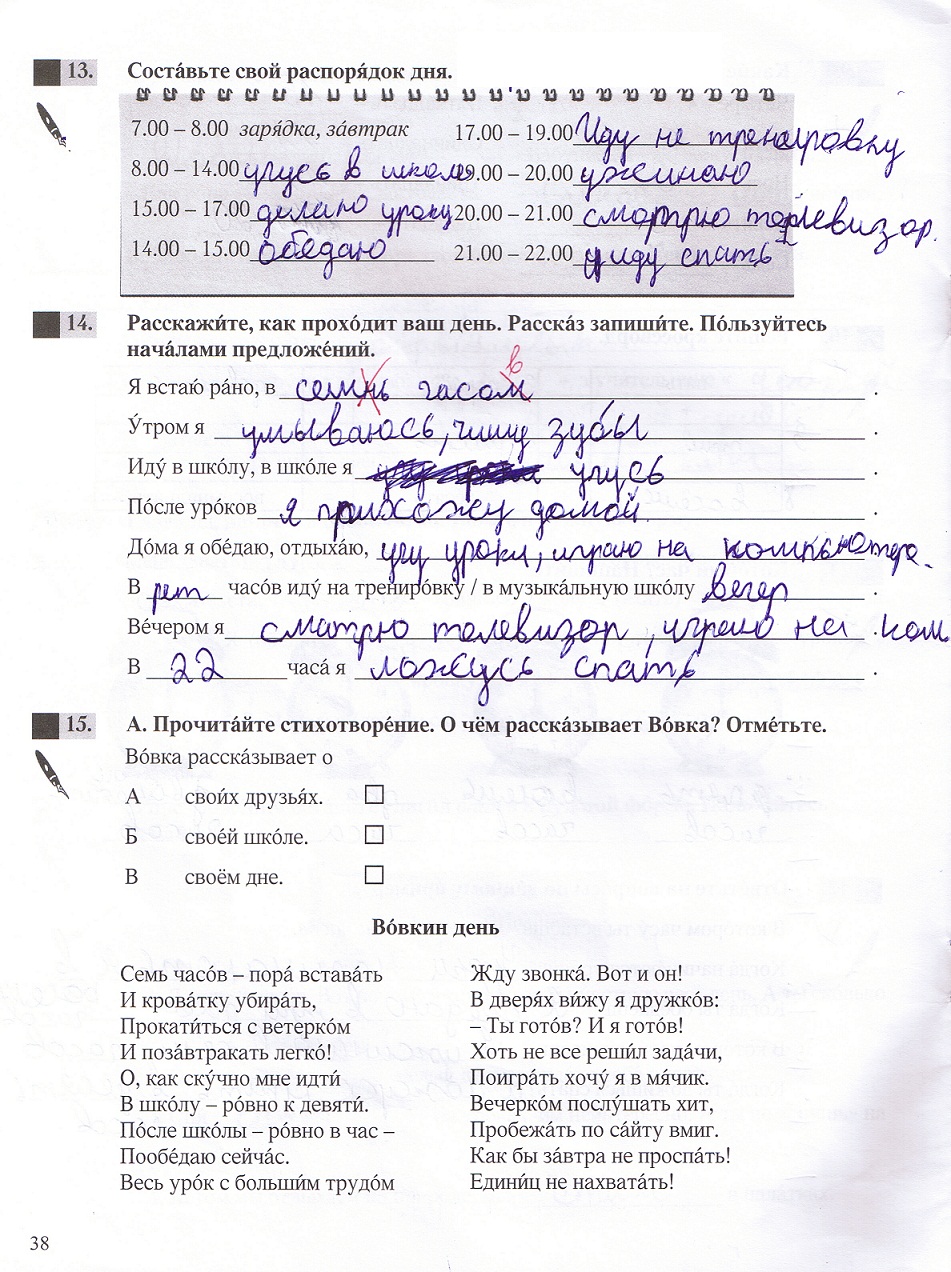 13. Соста́вьте свой распоря́док дня.
7.00 – 8.00 заря́дка, за́втрак
8.00 – 14.00 учусь в школе
15.00 – 17.00 делаю уроку
14.00 – 15.00 обедаю
17.00 – 19.00 Иду не тренировку
19.00 – 20.00 ужинаю
20.00 – 21.00 смортрю телевизор.
21.00 – 22.00 иду спать
14. Расскажи́те, как прохо́дит ваш день. Расска́з запиши́те. По́льзуйтесь
нача́лами предложе́ний.
в
Я встаю́ ра́но, в семь часом .
У́тром я умываюсь, чищу зубы .
Иду́ в шко́лу, в шко́ле я учусь .
По́сле уро́ков я прихожу домой. .
До́ма я обе́даю, отдыха́ю, учу уроки, играю на
В часо́в иду́ на трениро́вку / в музыка́льную шко́лу вечер .
Ве́чером я сматрю телевизор, играю на ком .
В 22 часа́ я ложусь спать .
15. А. Прочита́йте стихотворе́ние. О чём расска́зывает Во́вка? Отме́тьте.
Во́вка расска́зывает о
А свои́х друзья́х.
Б свое́й шко́ле.
В своём дне.
Во́вкин день
Семь часо́в – пора́ встава́ть
И крова́тку убира́ть,
Прокати́ться с ветерко́м
И поза́втракать легко́!
О, как ску́чно мне идти́
В шко́лу – ро́вно к девяти́.
По́сле шко́лы – ро́вно в час –
Пообе́даю сейча́с.
Весь уро́к с больши́м трудо́м
Жду звонка́. Вот и он!
В дверя́х ви́жу я дружко́в:
– Ты гото́в? И я гото́в!
Хоть не все реши́л зада́чи,
Поигра́ть хочу́ я в мя́чик.
Вечерко́м послу́шать хит,
Пробежа́ть по са́йту вмиг.
Как бы за́втра не проспа́ть!
Едини́ц не нахвата́ть!
38